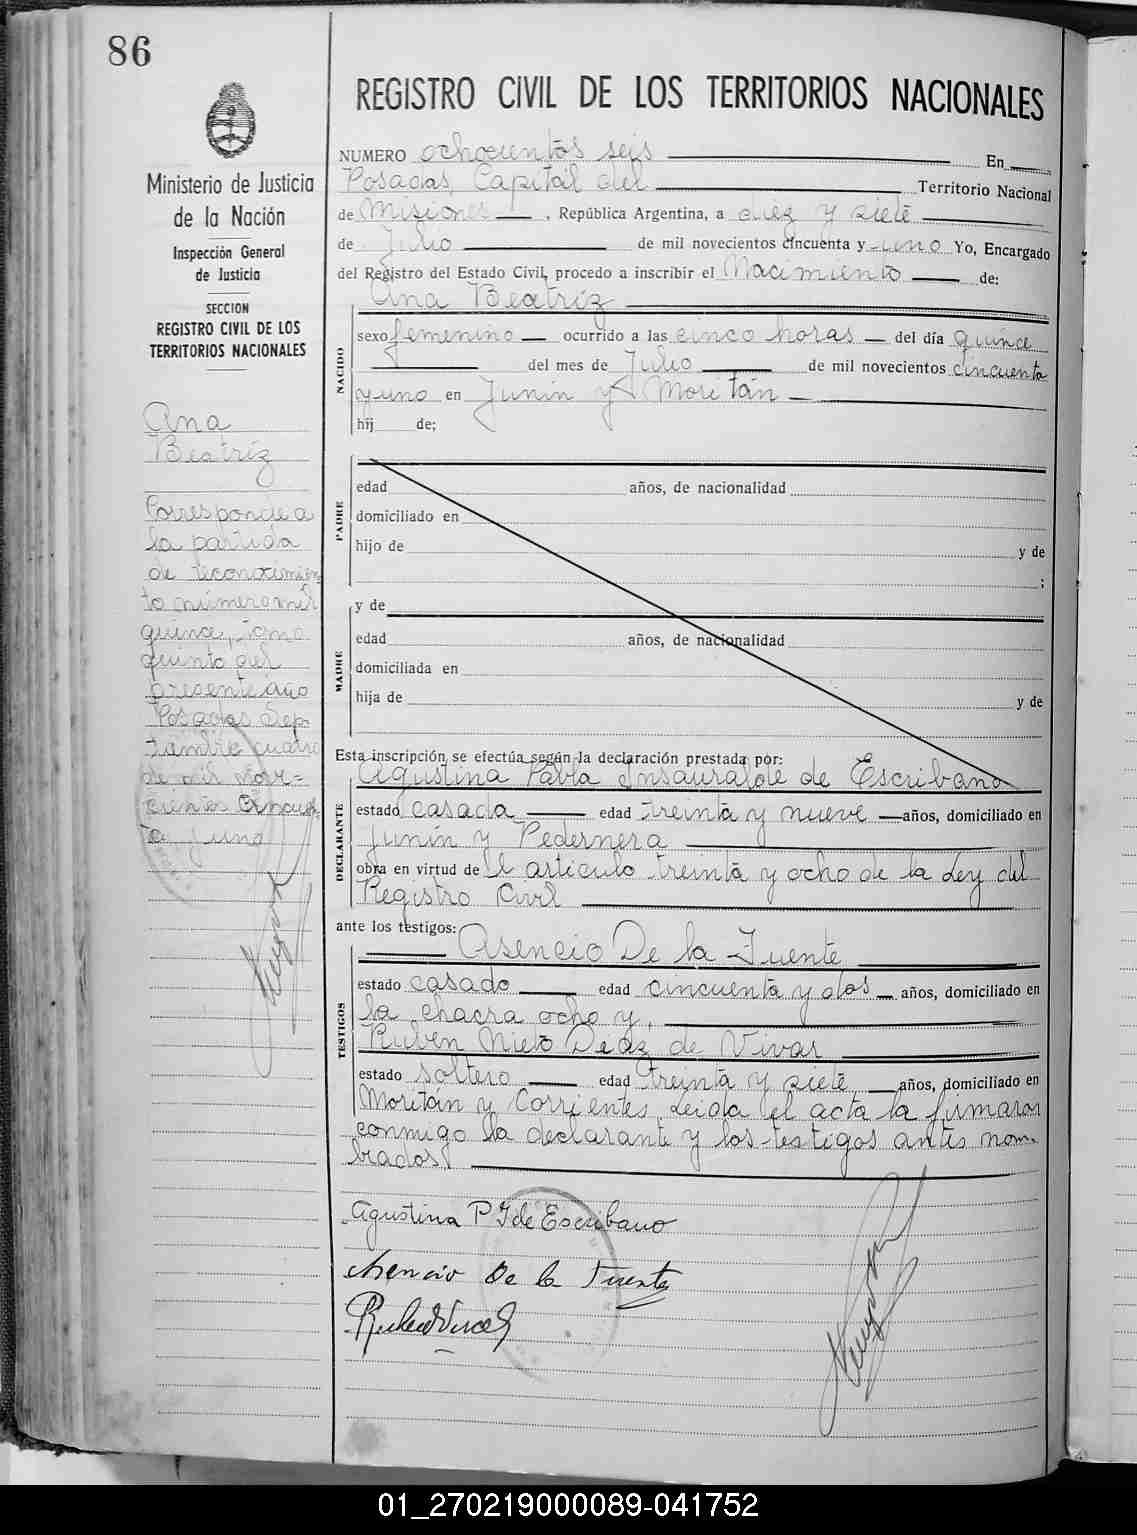 86
Ministerio de Justicia
de la Nación
Inspección General
de Justicia
SECCION
REGISTRO CIVIL DE LOS
TERRITORIOS NACIONALES
Ana
Beatriz
Corresponde a
la partida
de reconocimien
to número mil
quince, tomo
quinto del
presente año
Posadas Sep-
tiembre cuatro
de mil nove=
cientos cincuen-
ta y uno
REGISTRO CIVIL DE LOS TERRITORIOS NACIONALES
NUMERO ochocientos seis En
Posadas, Capital del Territorio Nacional
de Misiones, República Argentina, a diez y siete
de Julio de mil novecientos cincuenta y uno Yo, Encargado
del Registro del Estado Civil, procedo a inscribir el Nacimiento de:
Ana Beatriz
NACIDO
sexo femenino ocurrido a las cinco horas del día quince
del mes de Julio de mil novecientos cincuenta
y uno en Junín y Moritán
hij de;
PADRE
edad años, de nacionalidad
domiciliado en
hijo de y de
;
MADRE
y de
edad años, de nacionalidad
domiciliada en
hija de y de
Esta inscripción se efectúa según la declaración prestada por:
Agustina Pabla Insaurralde de Escribano
DECLARANTE
estado casada edad treinta y nueve años, domiciliado en
Junín y Pedernera
obra en virtud de el artículo treinta y ocho de la Ley del
Registro Civil
ante los testigos:
Asencio De la Fuente
TESTIGOS
estado casado edad cincuenta y dos años, domiciliado en
la chacra ocho y,
Rubén Nieto Deáz de Vivar
estado soltero edad treinta y siete años, domiciliado en
Moritán y Corrientes. Leida el acta la firmaron
conmigo la declarante y los testigos antes nom-
brados.
Agustina P I de Escribano
Asencio De la Fuente
01_270219000089-041752